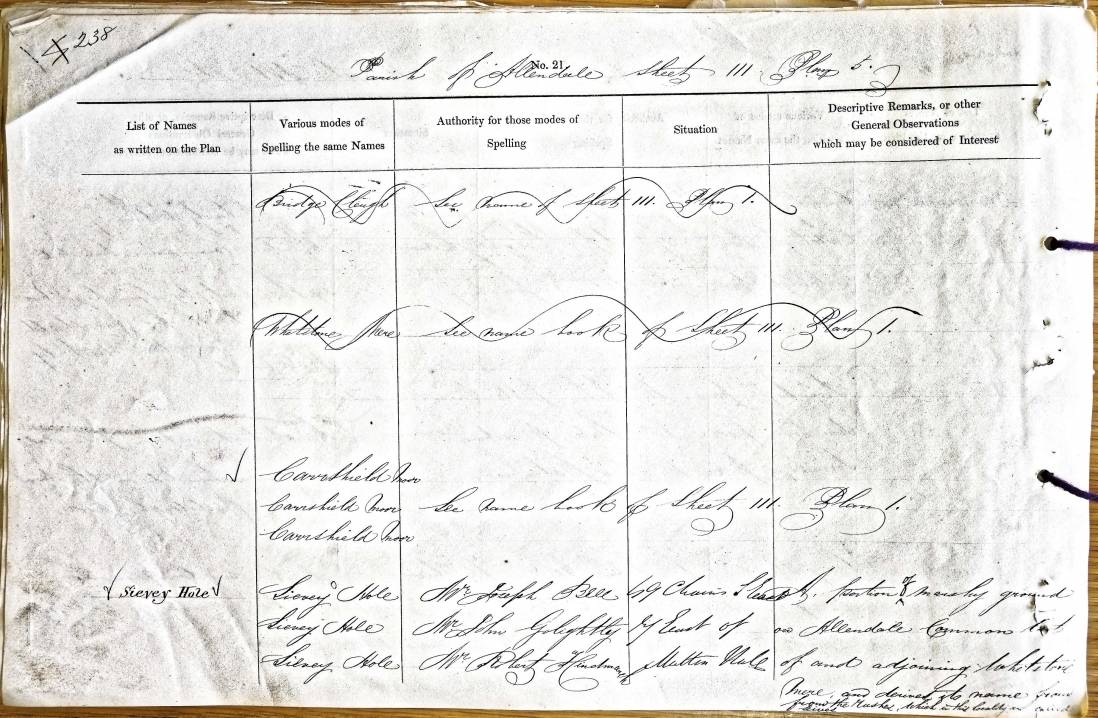 238
No. 21
Parish of Allendale Sheet 111. Plan 5.
List of Names
as written on the Plan
Various modes of
Spelling the same Names
Authority for those modes of
Spelling
Situation
Descriptive Remarks, or other
General Observations
which may be considered of Interest
Bridge Cleugh See name of Sheet 111. Plan 1.
Mere See name book of Sheet 111. Plan 1.
Carrshield Moor
Carrshield Moor See name book of Sheet 111. Plan 1.
Carrshield Moor
Sievey Hole Sievey Hole Mr. Joseph Bell 49 Chains S East A portion of marshy ground
Sievey Hole Mr. John Golightly by East of on Allendale Common
Sievey Hole Mr. Robert Hindmarsh of and adjoining
Mere, and derives its name from
from the Rushes, which in this locality